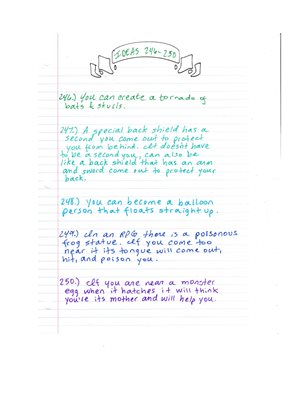 IDEAS 246-250
246.) You can create a tornado of
bats & stuils.
247.) A special back shield has a
second you come out to protect
you from behind. It doesnt have
to be a second you, can also be
like a back shield that has an arm
and sword come out to protect your
back.
248.) You can become a balloon
person that floats straight up.
249.) In an RPG there is a poisonous
frog statue. If you come too
near it its tongue will come out,
hit, and poison you.
250.) If you are near a monster
egg when it hatches it will think
you're its mother and will help you.